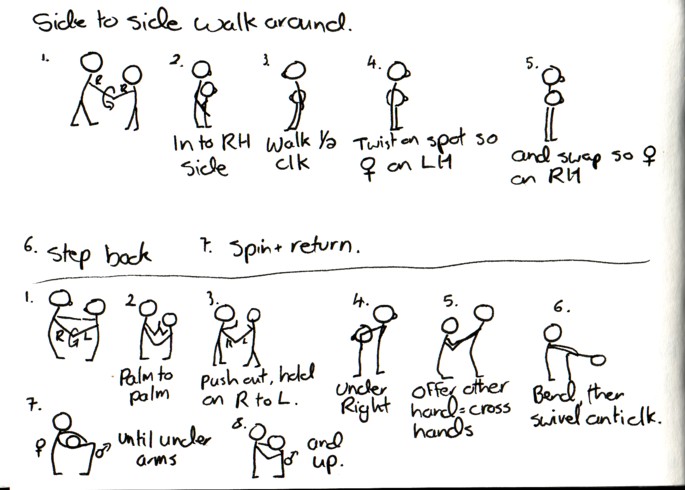 Side to side walk around.
1.
R R
2.
In to RH
side
3.
Walk ½
clk
4.
Twist on spot so
♀ on LH
5.
and swap so ♀
on RH
6. Step back
7. Spin + return.
1.
R L
2
Palm to
palm
3.
Push out, hold
on R to L.
R L
4.
Under
Right
5.
Offer other
hand = cross
hands
6.
Bend, then
swivel anticlk.
7.
♀ ♂
until under
arms
8.
♂
and
up.